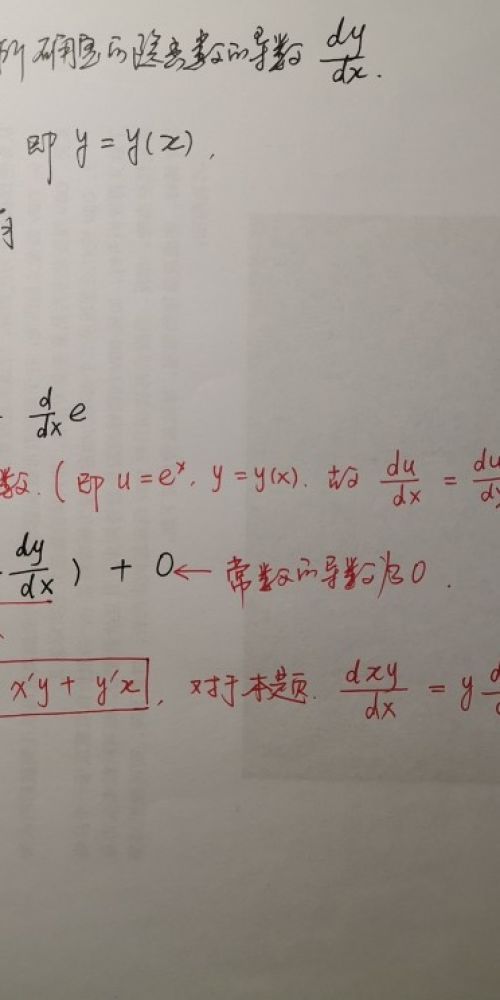 所确定的隐函数的导数 dy/dx.
即 y = y(x),
d/dx e
数. (即 u = e^x, y = y(x). 故 du/dx = du/dy
dy/dx ) + 0 ← 常数的导数为0.
x'y + y'x, 对于本题. dxy/dx = y